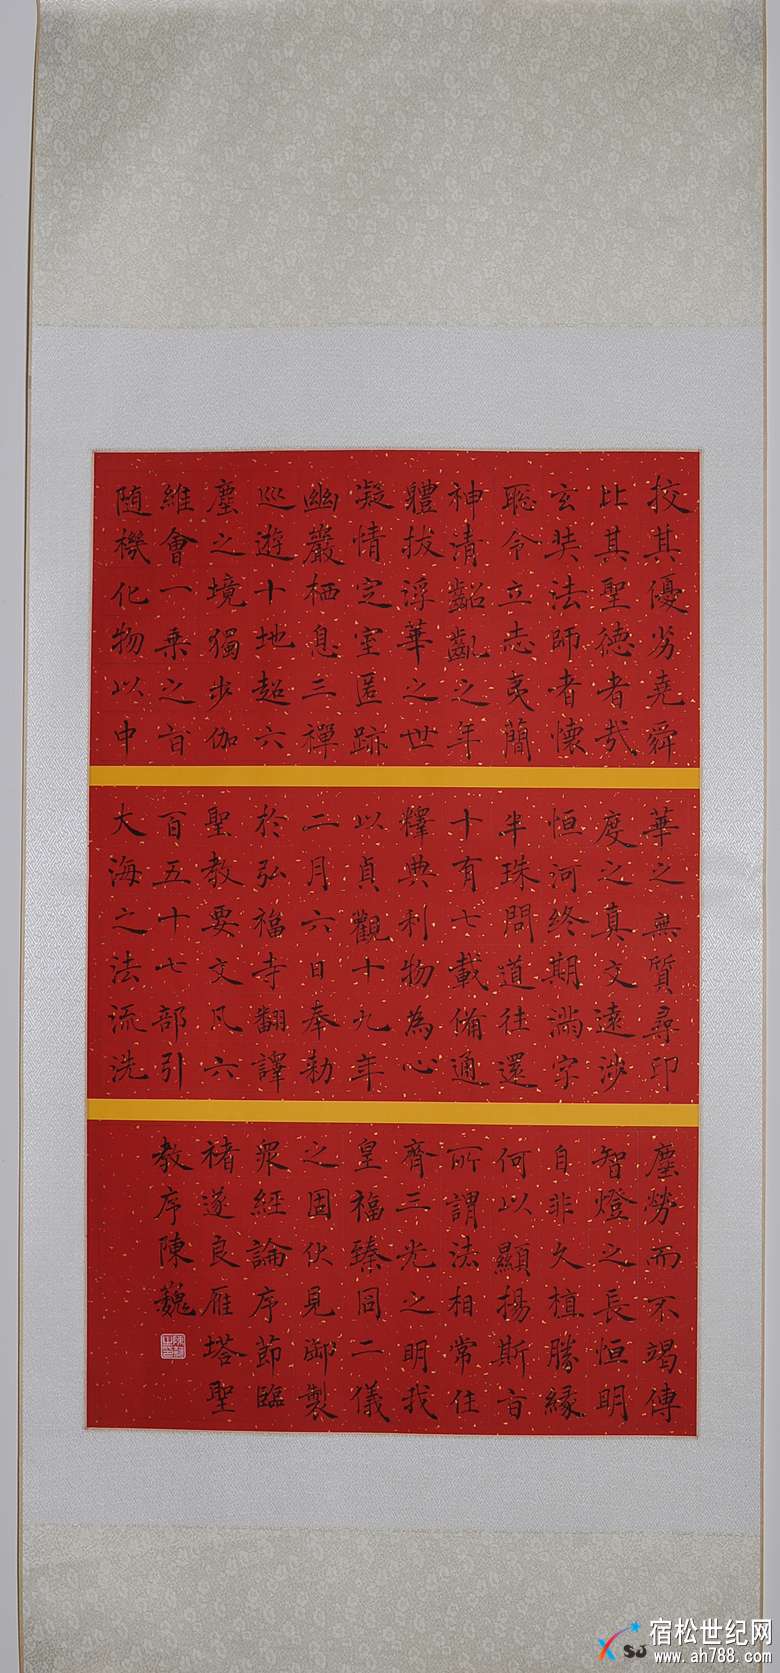 挍其優劣堯舜
比其聖德者哉
玄奘法師者懷
聡令立志夷簡
神清齠齓之年
體拔浮華之世
凝情定室匿跡
幽巖栖息三禪
巡遊十地超六
塵之境獨步伽
維會一乗之旨
随機化物以中
華之無質尋印
度之真文遠涉
恒河終期滿字
半珠問道往還
十有七載備通
釋典利物為心
以貞觀十九年
二月六日奉勅
於弘福寺翻譯
聖教要文凡六
百五十七部引
大海之法流洗
塵勞而不竭傳
智燈之長恒明
自非久植勝緣
何以顯揚斯旨
所謂法相常住
齊三光之明我
皇福臻同二儀
之固伏見御製
衆經論序節臨
褚遂良雁塔聖
教序陳魏
宿松世纪网
www.ah788.com